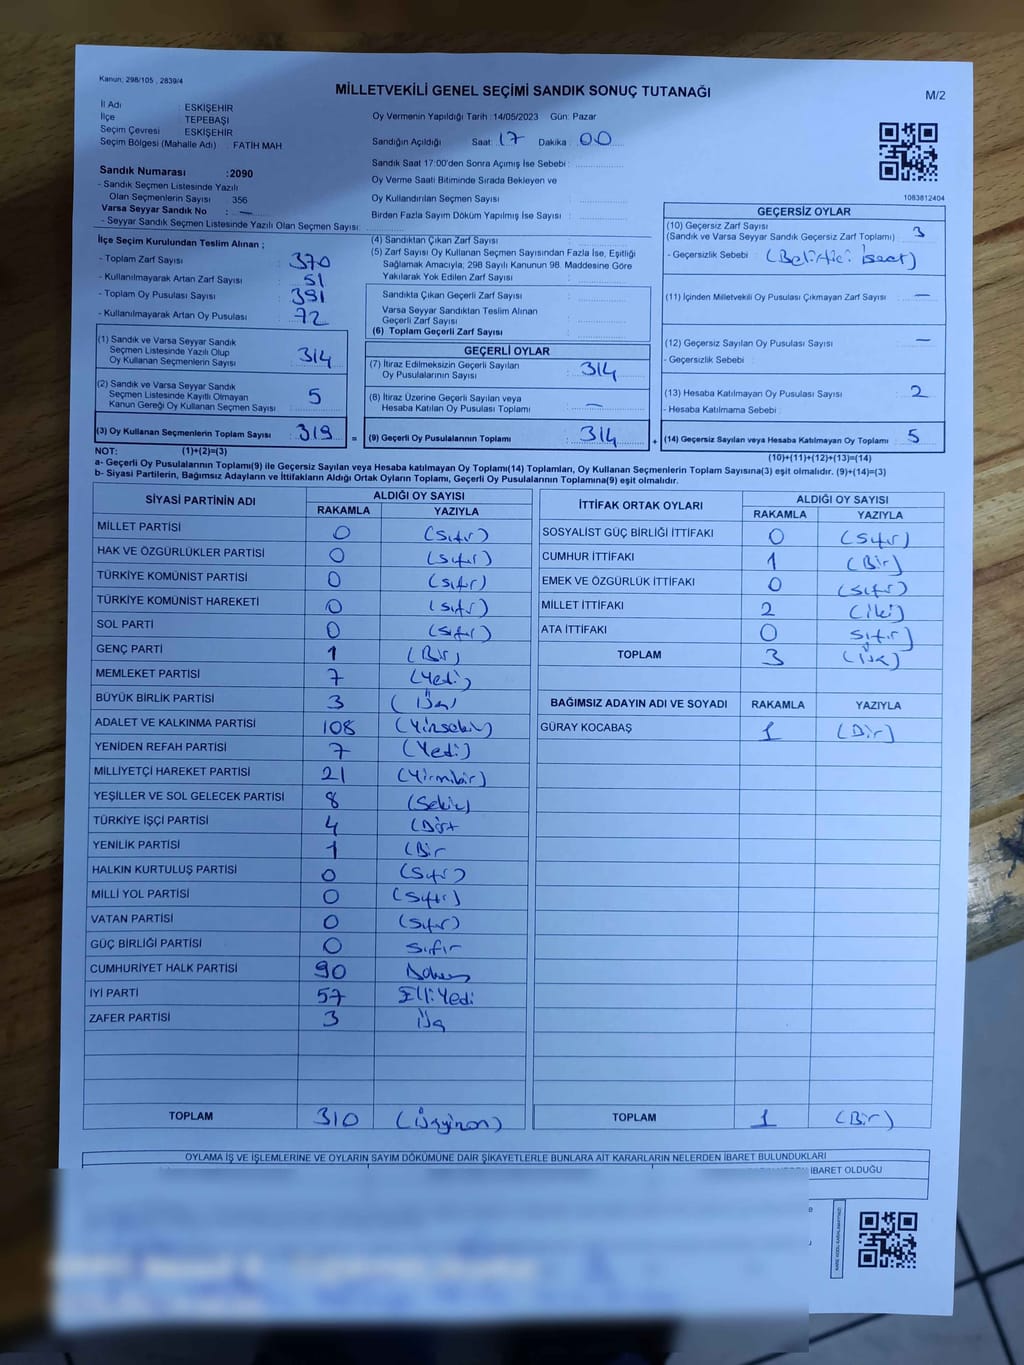 Kanun; 298/105 , 2839/4
MİLLETVEKİLİ GENEL SEÇİMİ SANDIK SONUÇ TUTANAĞI
M/2
İl Adı : ESKİŞEHİR
İlçe TEPEBAŞI
Seçim Çevresi : ESKİŞEHİR
Seçim Bölgesi (Mahalle Adı) : FATİH MAH
Oy Vermenin Yapıldığı Tarih : 14/05/2023 Gün: Pazar
Sandığın Açıldığı Saat: 17 Dakika : 00
Sandık Saat 17:00'den Sonra Açımış İse Sebebi :
Oy Verme Saati Bitiminde Sırada Bekleyen ve
Oy Kullandırılan Seçmen Sayısı :
Birden Fazla Sayım Döküm Yapılmış İse Sayısı :
1083812404
Sandık Numarası :2090
- Sandık Seçmen Listesinde Yazılı
Olan Seçmenlerin Sayısı : 356
Varsa Seyyar Sandık No : —
- Seyyar Sandık Seçmen Listesinde Yazılı Olan Seçmen Sayısı:
İlçe Seçim Kurulundan Teslim Alınan ;
- Toplam Zarf Sayısı : 370
- Kullanılmayarak Artan Zarf Sayısı : 51
- Toplam Oy Pusulası Sayısı : 391
- Kullanılmayarak Artan Oy Pusulası : 72
(1) Sandık ve Varsa Seyyar Sandık
Seçmen Listesinde Yazılı Olup
Oy Kullanan Seçmenlerin Sayısı : 314
(2) Sandık ve Varsa Seyyar Sandık
Seçmen Listesinde Kayıtlı Olmayan
Kanun Gereği Oy Kullanan Seçmen Sayısı : 5
(3) Oy Kullanan Seçmenlerin Toplam Sayısı : 319
(4) Sandıktan Çıkan Zarf Sayısı :
(5) Zarf Sayısı Oy Kullanan Seçmen Sayısından Fazla İse, Eşitliği
Sağlamak Amacıyla, 298 Sayılı Kanunun 98. Maddesine Göre
Yakılarak Yok Edilen Zarf Sayısı :
Sandıkta Çıkan Geçerli Zarf Sayısı :
Varsa Seyyar Sandıktan Teslim Alınan
Geçerli Zarf Sayısı :
(6) Toplam Geçerli Zarf Sayısı :
GEÇERLİ OYLAR
(7) İtiraz Edilmeksizin Geçerli Sayılan
Oy Pusulalarının Sayısı : 314
(8) İtiraz Üzerine Geçerli Sayılan veya
Hesaba Katılan Oy Pusulası Toplamı : —
= (9) Geçerli Oy Pusulalarının Toplamı : 314
GEÇERSİZ OYLAR
(10) Geçersiz Zarf Sayısı
(Sandık ve Varsa Seyyar Sandık Geçersiz Zarf Toplamı) : 3
- Geçersizlik Sebebi :
(11) İçinden Milletvekili Oy Pusulası Çıkmayan Zarf Sayısı : —
(12) Geçersiz Sayılan Oy Pusulası Sayısı : —
- Geçersizlik Sebebi :
(13) Hesaba Katılmayan Oy Pusulası Sayısı : 2
- Hesaba Katılmama Sebebi :
+ (14) Geçersiz Sayılan veya Hesaba Katılmayan Oy Toplamı : 5
NOT: (1)+(2)=(3) (10)+(11)+(12)+(13)=(14)
a- Geçerli Oy Pusulalarının Toplamı(9) ile Geçersiz Sayılan veya Hesaba katılmayan Oy Toplamı(14) Toplamları, Oy Kullanan Seçmenlerin Toplam Sayısına(3) eşit olmalıdır. (9)+(14)=(3)
b- Siyasi Partilerin, Bağımsız Adayların ve İttifakların Aldığı Ortak Oyların Toplamı, Geçerli Oy Pusulalarının Toplamına(9) eşit olmalıdır.
SİYASİ PARTİNİN ADI ALDIĞI OY SAYISI
RAKAMLA YAZIYLA
MİLLET PARTİSİ 0 (Sıfır)
HAK VE ÖZGÜRLÜKLER PARTİSİ 0 (Sıfır)
TÜRKİYE KOMÜNİST PARTİSİ 0 (Sıfır)
TÜRKİYE KOMÜNİST HAREKETİ 0 (Sıfır)
SOL PARTİ 0 (Sıfır)
GENÇ PARTİ 1 (Bir)
MEMLEKET PARTİSİ 7 (Yedi)
BÜYÜK BİRLİK PARTİSİ 3 (Üç)
ADALET VE KALKINMA PARTİSİ 108 (Yüzsekiz)
YENİDEN REFAH PARTİSİ 7 (Yedi)
MİLLİYETÇİ HAREKET PARTİSİ 21 (Yirmibir)
YEŞİLLER VE SOL GELECEK PARTİSİ 8 (Sekiz)
TÜRKİYE İŞÇİ PARTİSİ 4 (Dört
YENİLİK PARTİSİ 1 (Bir
HALKIN KURTULUŞ PARTİSİ 0 (Sıfır)
MİLLİ YOL PARTİSİ 0 (Sıfır)
VATAN PARTİSİ 0 (Sıfır)
GÜÇ BİRLİĞİ PARTİSİ 0 Sıfır
CUMHURİYET HALK PARTİSİ 90 Doksan
İYİ PARTİ 57 Elli Yedi
ZAFER PARTİSİ 3 Üç
TOPLAM 310 (Üçyüzon)
İTTİFAK ORTAK OYLARI ALDIĞI OY SAYISI
RAKAMLA YAZIYLA
SOSYALİST GÜÇ BİRLİĞİ İTTİFAKI 0 (Sıfır)
CUMHUR İTTİFAKI 1 (Bir)
EMEK VE ÖZGÜRLÜK İTTİFAKI 0 (Sıfır)
MİLLET İTTİFAKI 2 (İki)
ATA İTTİFAKI 0 Sıfır)
TOPLAM 3 (Üç)
BAĞIMSIZ ADAYIN ADI VE SOYADI RAKAMLA YAZIYLA
GÜRAY KOCABAŞ 1 (Bir)
TOPLAM 1 (Bir)
OYLAMA İŞ VE İŞLEMLERİNE VE OYLARIN SAYIM DÖKÜMÜNE DAİR ŞİKAYETLERLE BUNLARA AİT KARARLARIN NELERDEN İBARET BULUNDUKLARI
İBARET OLDUĞU